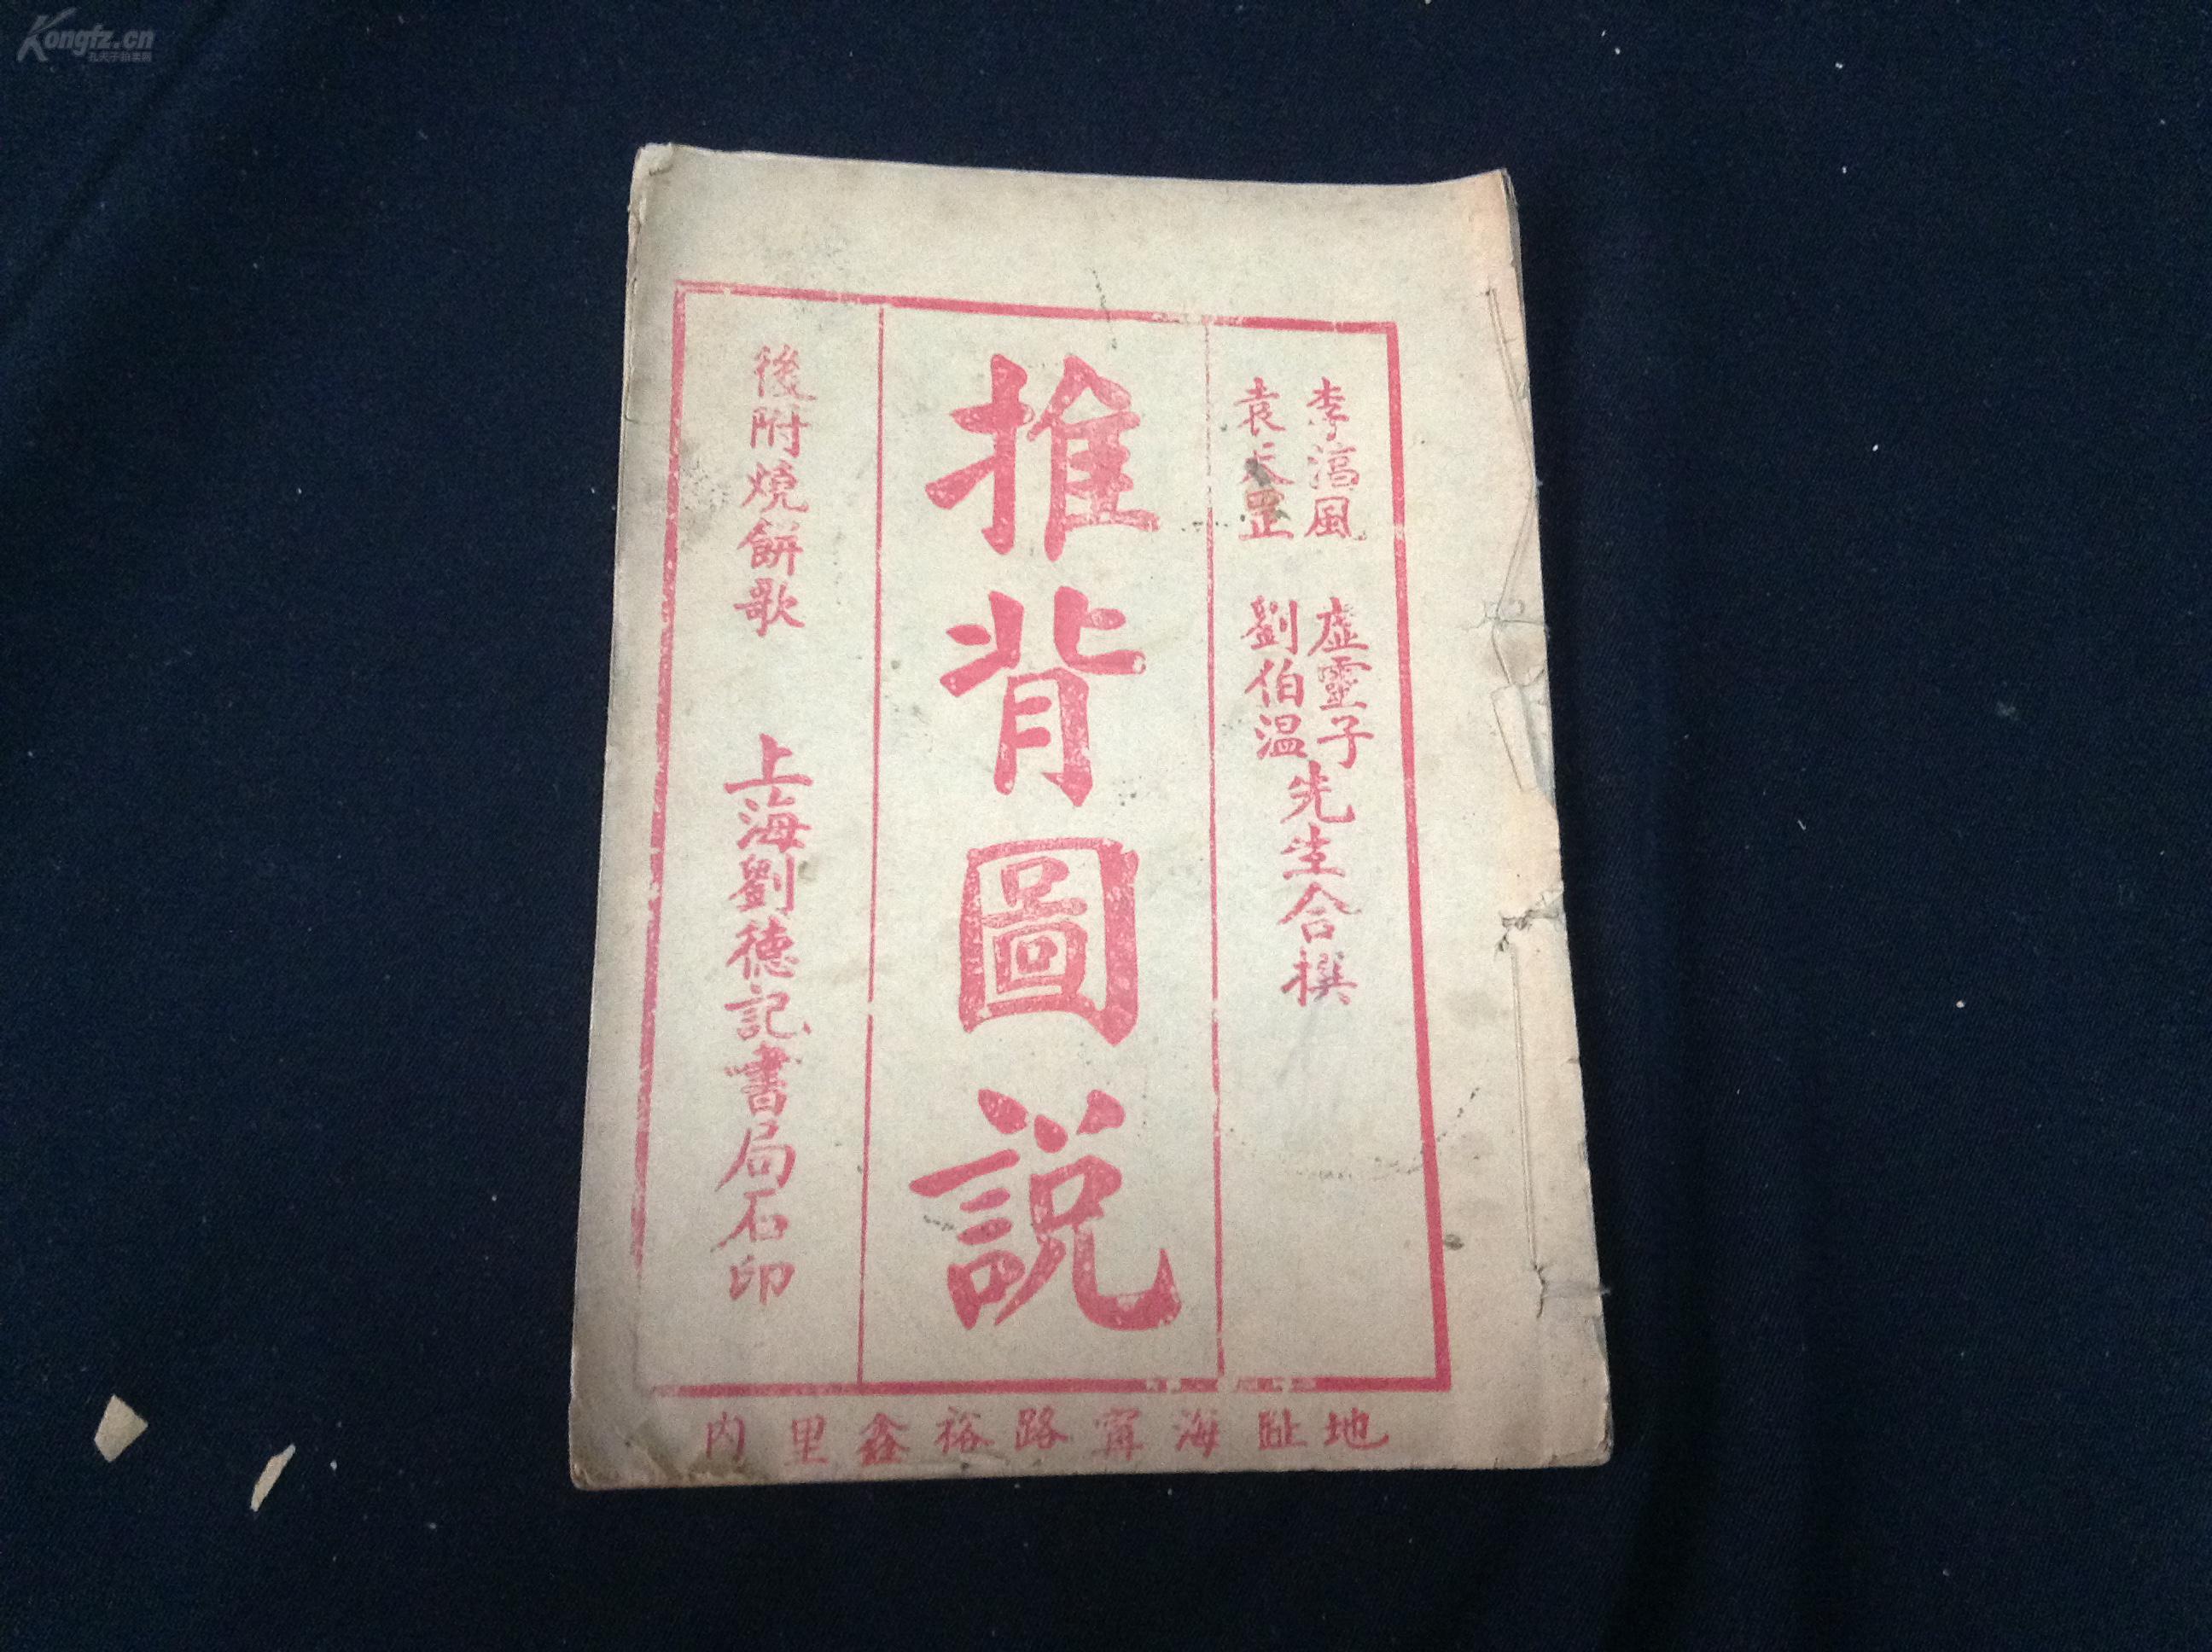 李淳風 虛靈子
袁天罡 劉伯温
先生合撰
推背圖説
後附燒餅歌 上海劉德記書局石印
地趾海甯路裕鑫里内
Kongfz.cn